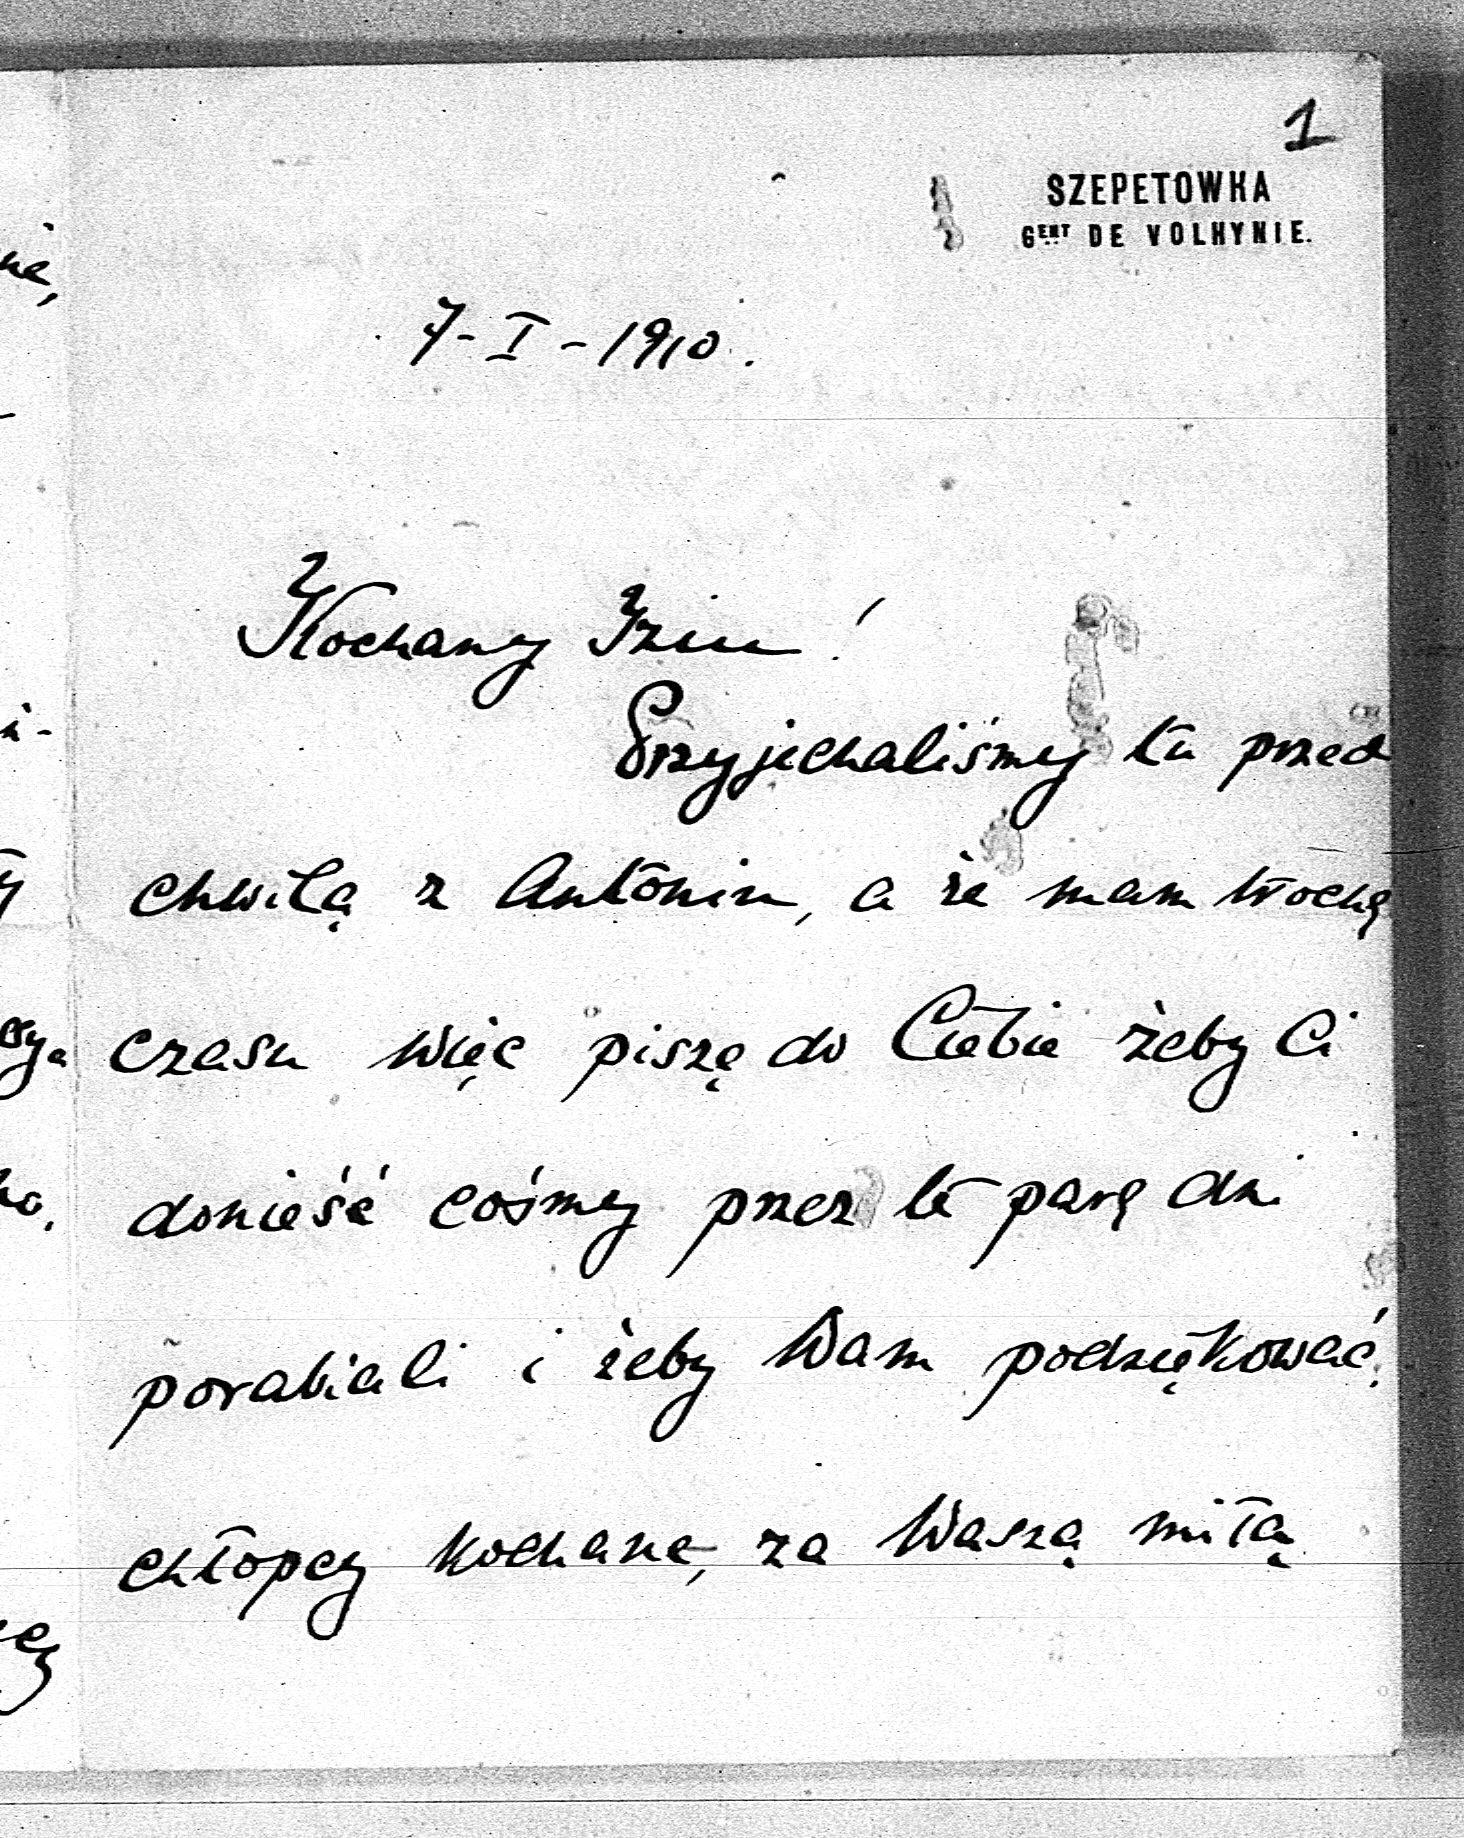 1
SZEPETOWKA
GENT DE VOLHYNIE.
7-I-1910.
Kochany Iziu!
Przyjechaliśmy tu przed
chwilą z Antonin, a że mam trochę
czasu więc piszę do Ciebie żeby Ci
donieść cośmy przez te parę dni
porabiali i żeby Wam podziękować,
chłopcy kochane, za Waszą miłą